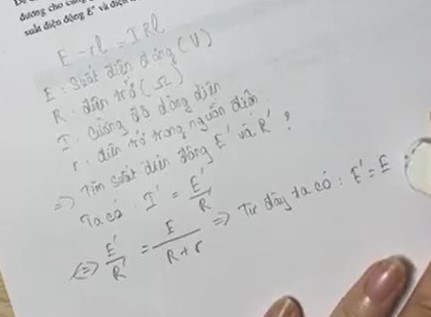 dương cho
suất điện động E' và điện
E - rI = IRl
E : Suất điện động (V)
R : điện trở (Ω)
I : Cường độ dòng điện
r : điện trở trong nguồn điện
=> Tìm suất điện động E' và R' ?
Ta có : I' = E'/R'
<=> E'/R' = E/(R+r) => Từ đây ta có : E' = E